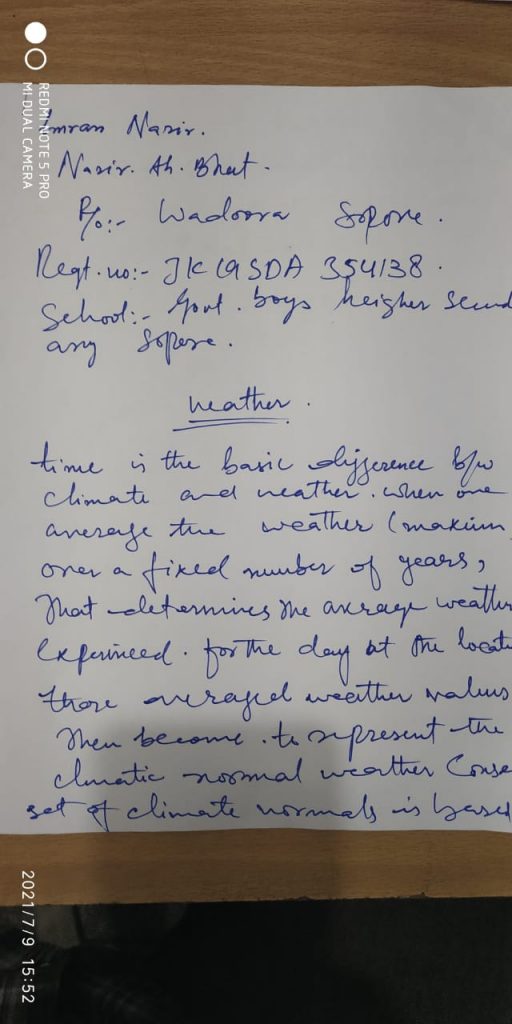 Imran Nazir.
Nazir. Ah. Bhat.
R/o:- Wadoora Sopore.
Regt. no:- JK19SDA 354138.
School:- Govt. boys heigher Second
ary Sopore.
weather.
time is the basic difference b/w
climate and weather. when one
average the weather (maxium,
over a fixed number of years,
that determines the average weather
experineed. for the day at the locati
those averaged weather values
then become to represent the
climatic normal weather Conse
set of climate normals is based
REDMI NOTE 5 PRO
MI DUAL CAMERA
2021/7/9 15:52